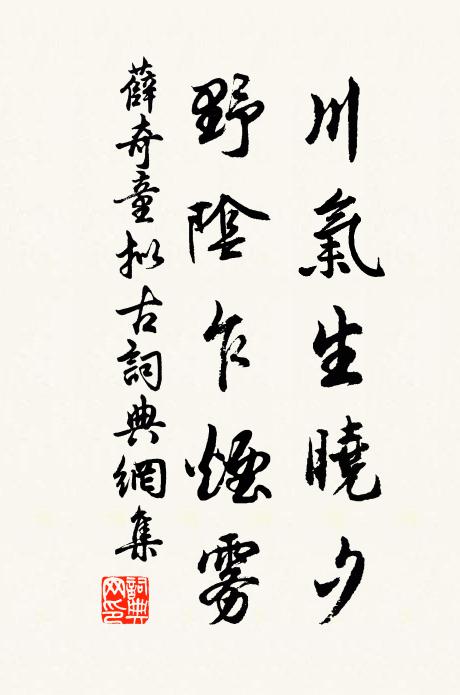 川氣生曉夕
野陰乍煙霧
薛奇童拟古詞典網集
詞典网印